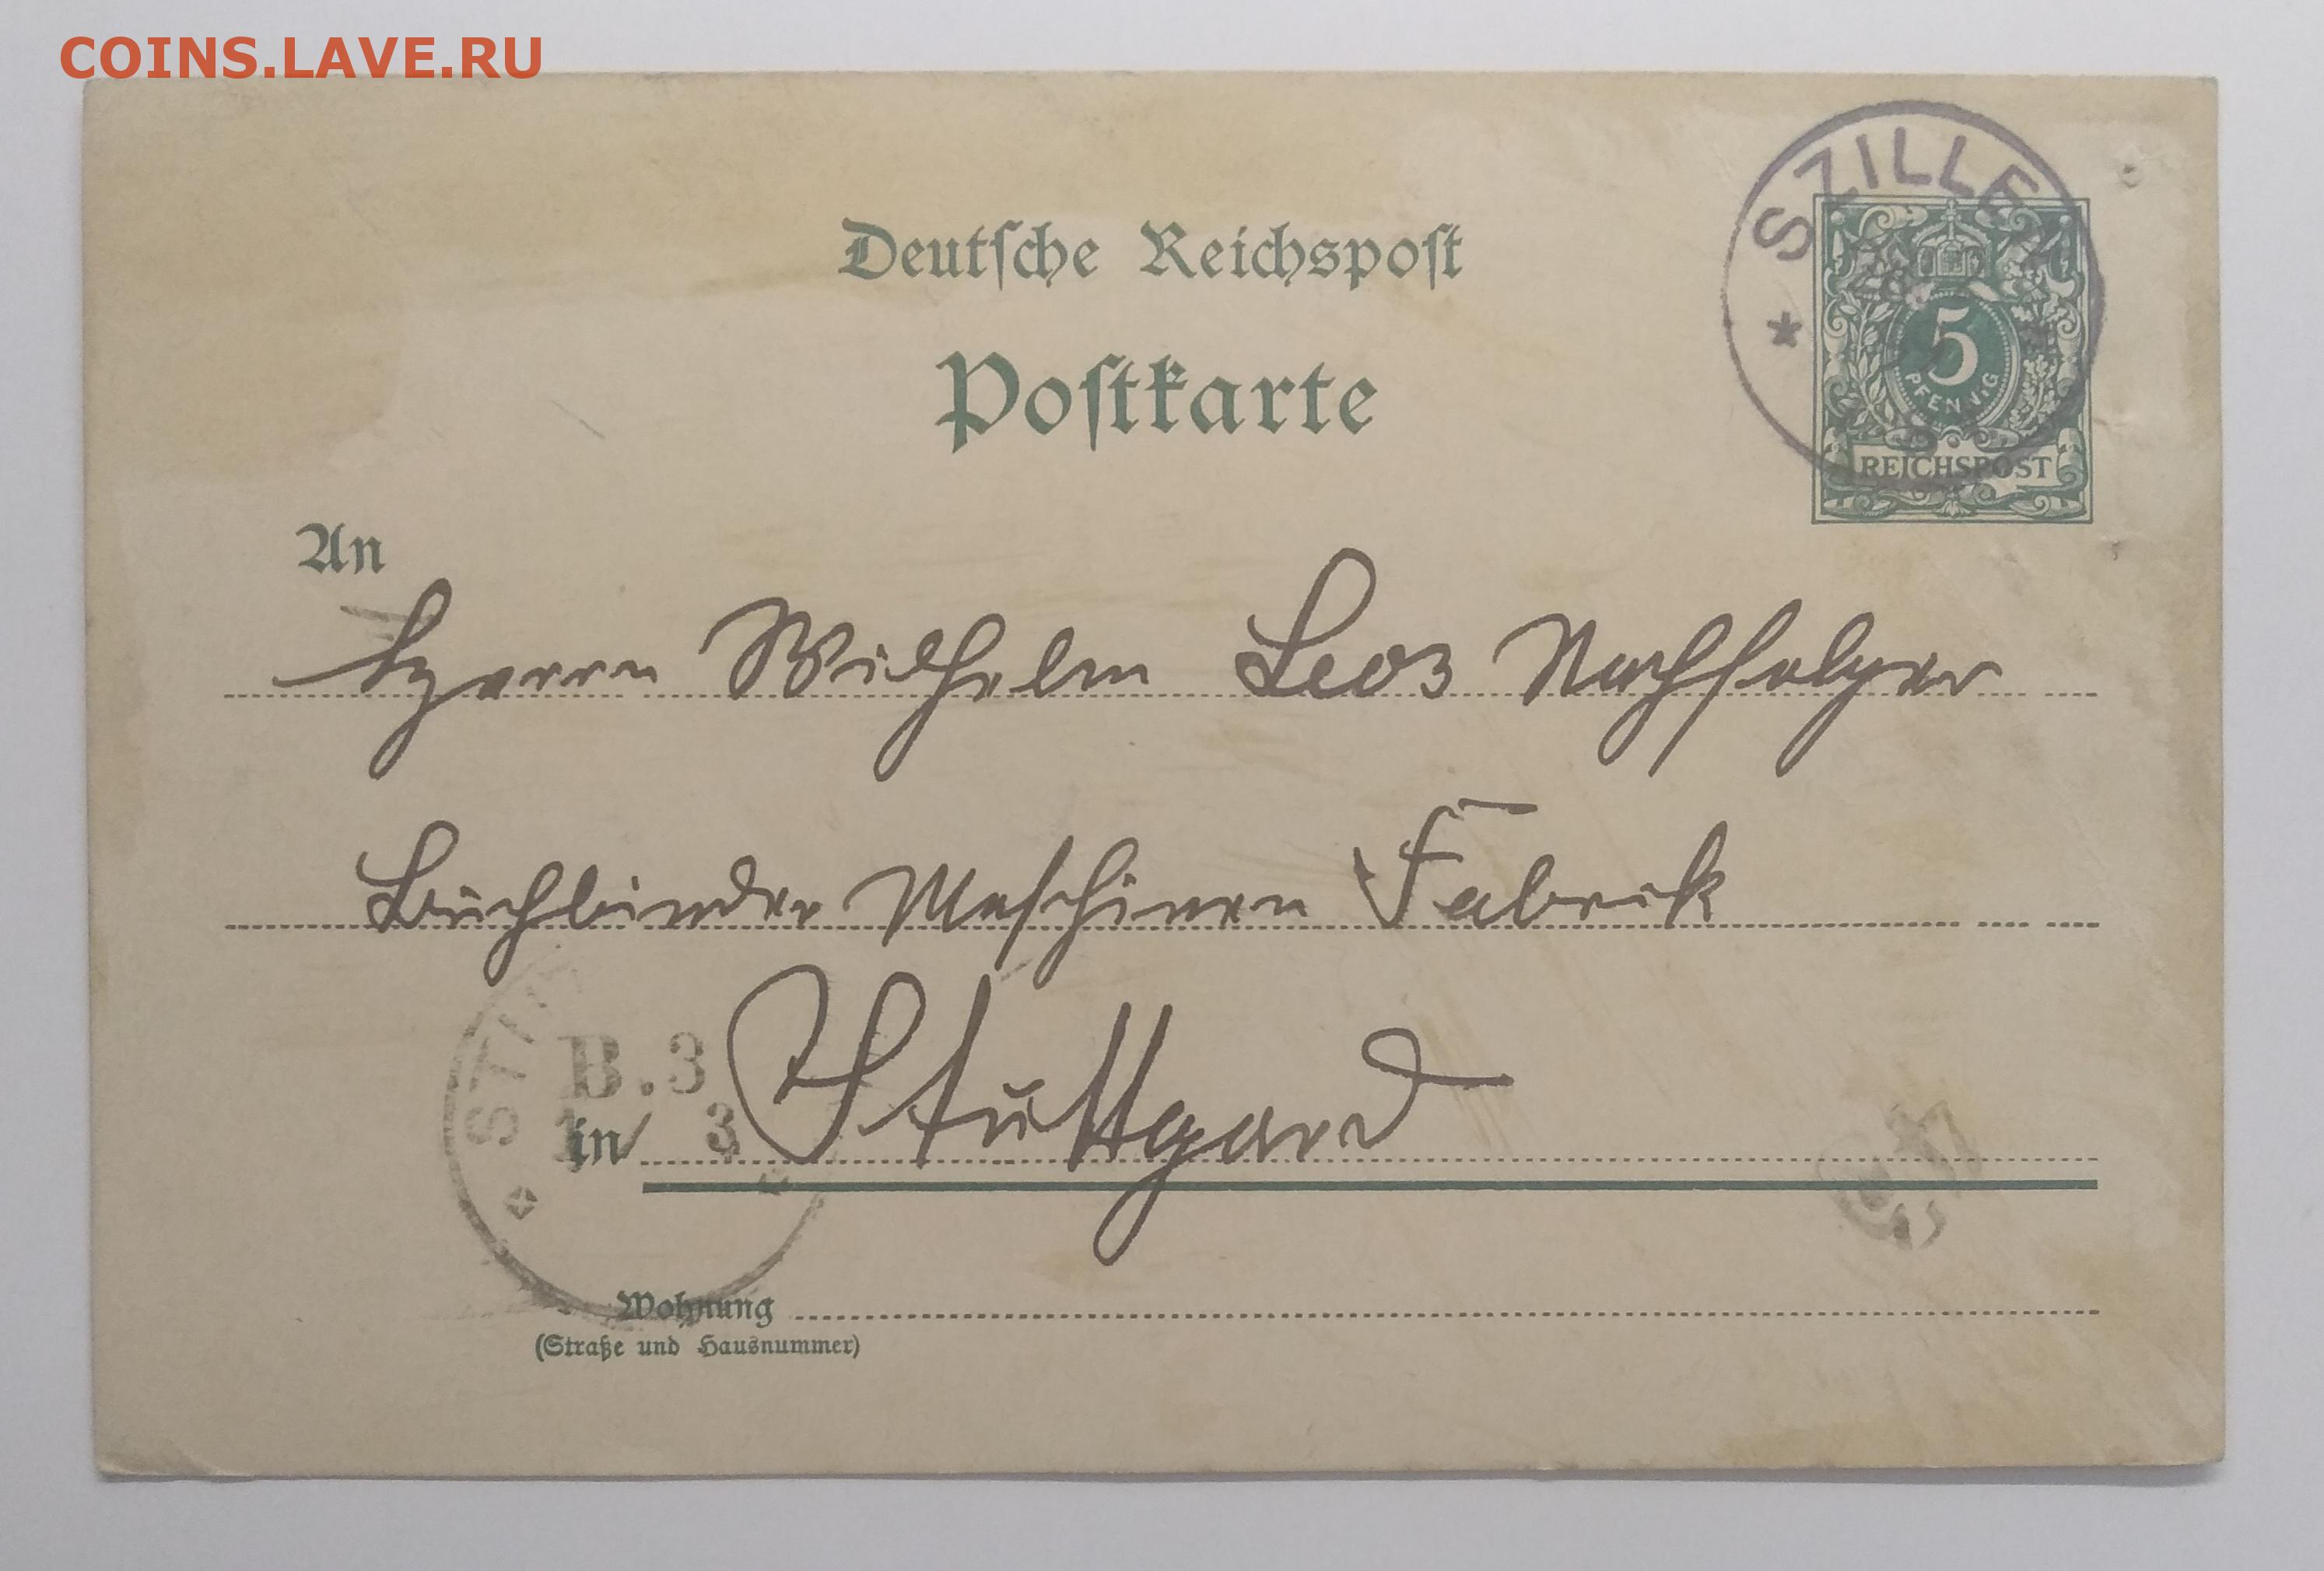 COINS.LAVE.RU
SZILLEN
Deutsche Reichspost
5
PFENNIG
REICHSPOST
Postkarte
An
Herrn Wilhelm Leos Nachfolger
Buchbinder Maschinen Fabrik
B.3
3
in Stuttgard
Wohnung
(Straße und Hausnummer)